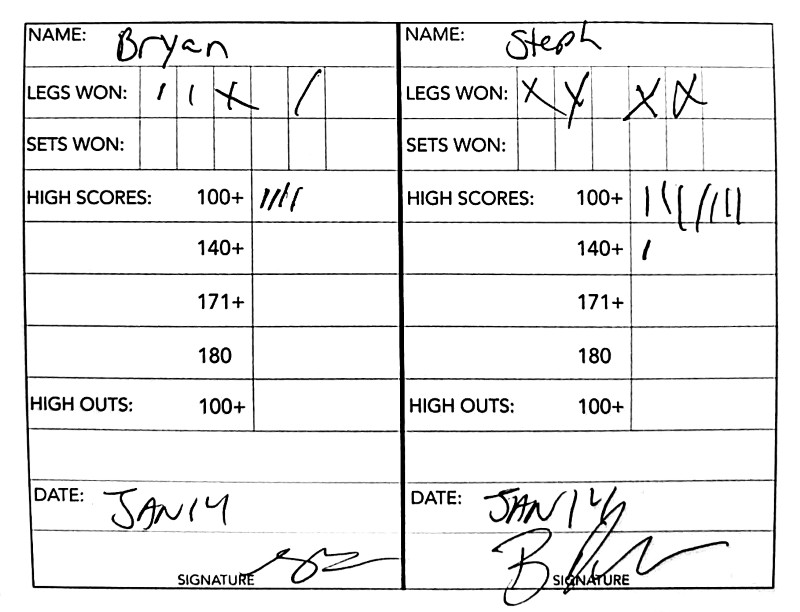 NAME: Bryan
LEGS WON: / / X /
SETS WON:
HIGH SCORES: 100+ ////
140+
171+
180
HIGH OUTS: 100+
DATE: JAN 14
SIGNATURE
NAME: Steph
LEGS WON: X X X X
SETS WON:
HIGH SCORES: 100+ ////////
140+ /
171+
180
HIGH OUTS: 100+
DATE: JAN 14
SIGNATURE